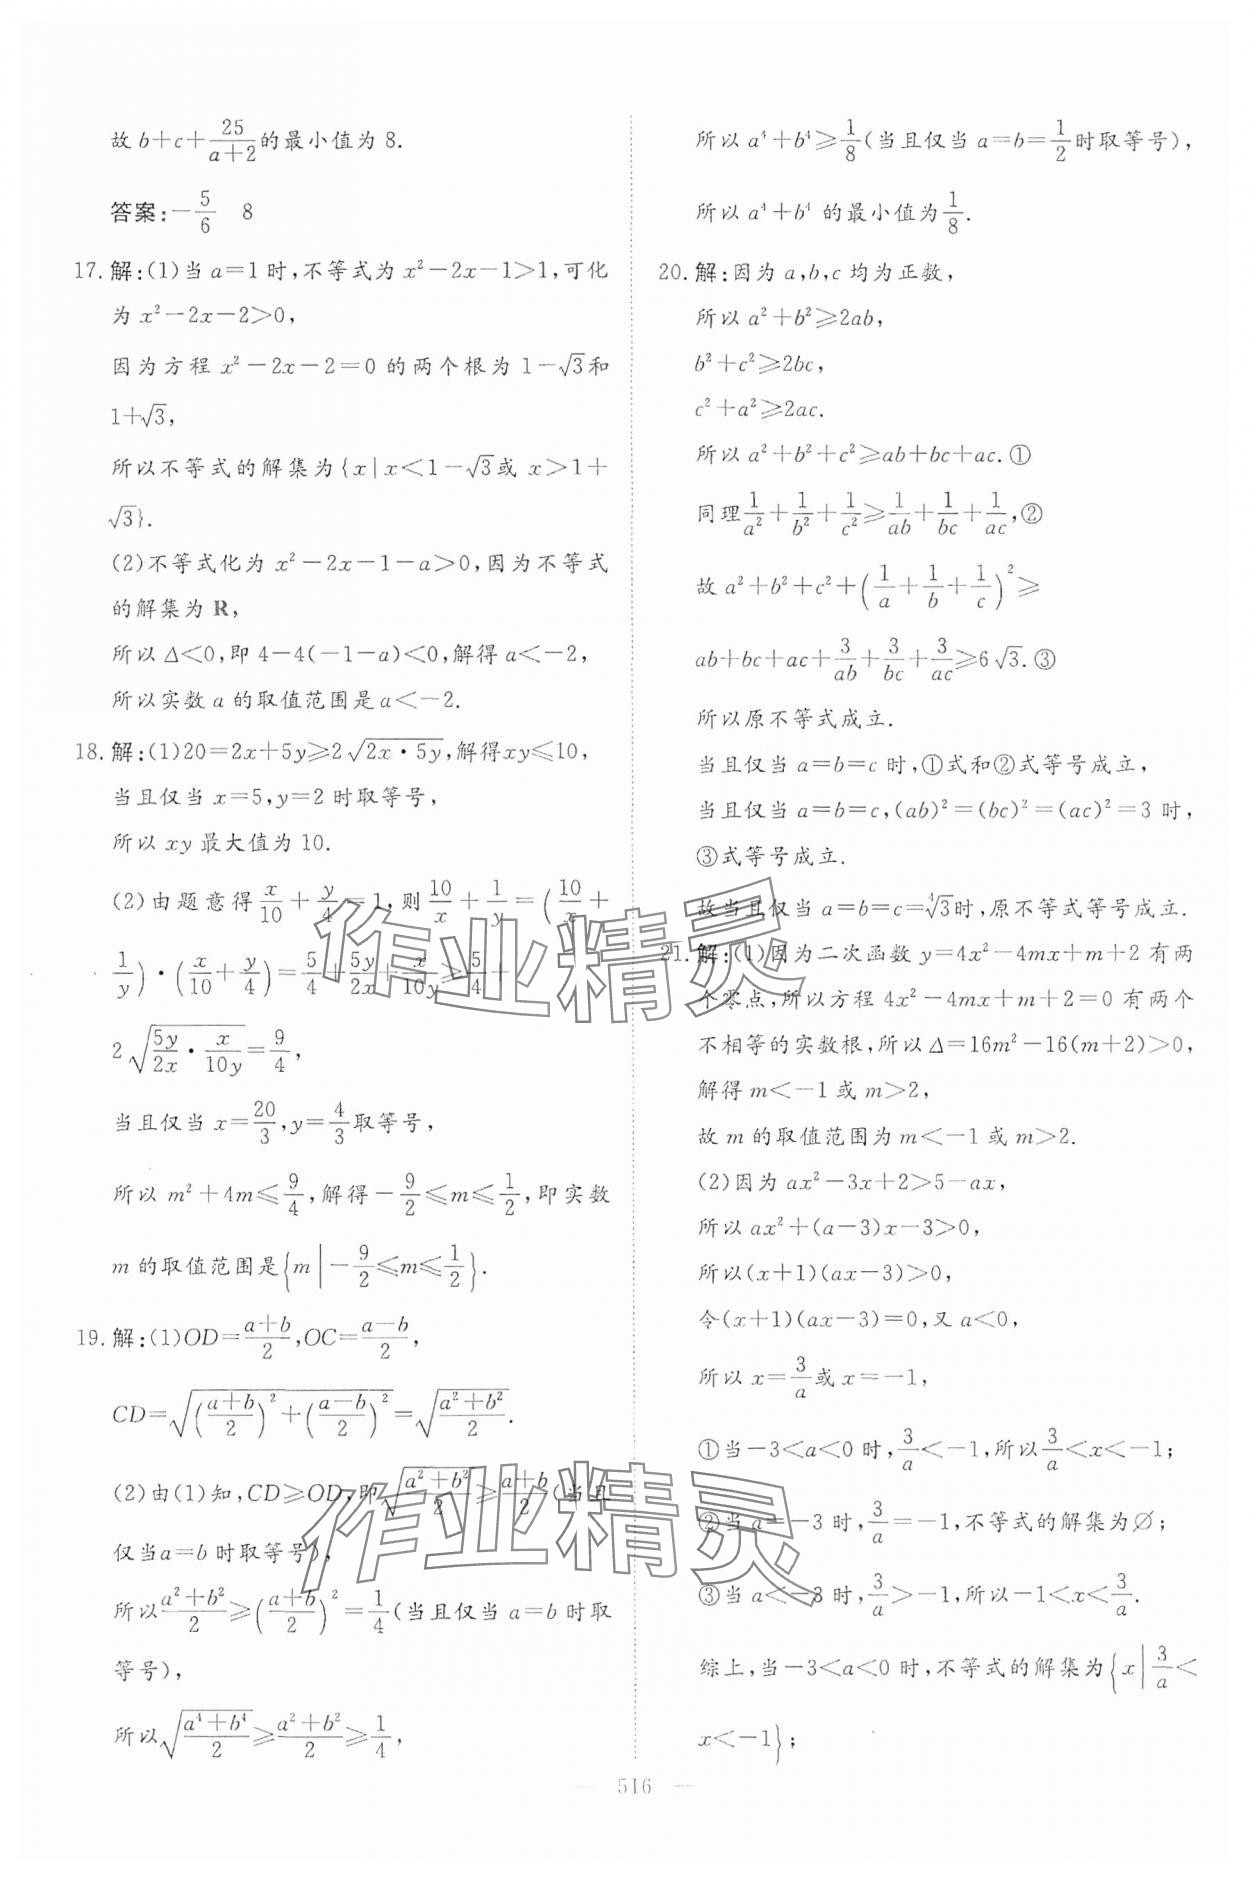 故 b+c+\frac{25}{a+2}的最小值为 8.
答案:-\frac{5}{6}  8
17. 解:(1)当 a=1 时,不等式为 x²-2x-1>1,可化
为 x²-2x-2>0,
因为方程 x²-2x-2=0 的两个根为 1-√3和
1+√3,
所以不等式的解集为{x|x<1-√3或 x>1+
√3}.
(2)不等式化为 x²-2x-1-a>0,因为不等式
的解集为 R,
所以 Δ<0,即 4-4(-1-a)<0,解得 a<-2,
所以实数 a 的取值范围是 a<-2.
18. 解:(1)20=2x+5y≥2\sqrt{2x·5y},解得xy≤10,
当且仅当 x=5,y=2 时取等号,
所以 xy 最大值为 10.
(2)由题意得\frac{x}{10}+\frac{y}{4}=1,则\frac{10}{x}+\frac{1}{y}=(\frac{10}{x}+
\frac{1}{y})·(\frac{x}{10}+\frac{y}{4})=\frac{5}{4}+\frac{5y}{2x}+\frac{x}{10y}≥\frac{5}{4}+
2\sqrt{\frac{5y}{2x}·\frac{x}{10y}}=\frac{9}{4},
当且仅当 x=\frac{20}{3},y=\frac{4}{3}取等号,
所以 m²+4m≤\frac{9}{4},解得-\frac{9}{2}≤m≤\frac{1}{2},即实数
m 的取值范围是{m|-\frac{9}{2}≤m≤\frac{1}{2}}.
19. 解:(1)OD=\frac{a+b}{2},OC=\frac{a-b}{2},
CD=\sqrt{(\frac{a+b}{2})²+(\frac{a-b}{2})²}=\sqrt{\frac{a²+b²}{2}}.
(2)由(1)知,CD≥OD,即\sqrt{\frac{a²+b²}{2}}≥\frac{a+b}{2}(当且
仅当a=b 时取等号),
所以\frac{a²+b²}{2}≥(\frac{a+b}{2})²=\frac{1}{4}(当且仅当 a=b 时取
等号),
所以\sqrt{\frac{a⁴+b⁴}{2}}≥\frac{a²+b²}{2}≥\frac{1}{4},
所以 a⁴+b⁴≥\frac{1}{8}(当且仅当 a=b=\frac{1}{2}时取等号),
所以 a⁴+b⁴ 的最小值为\frac{1}{8}.
20. 解:因为 a,b,c 均为正数,
所以 a²+b²≥2ab,
b²+c²≥2bc,
c²+a²≥2ac.
所以 a²+b²+c²≥ab+bc+ac.①
同理\frac{1}{a²}+\frac{1}{b²}+\frac{1}{c²}≥\frac{1}{ab}+\frac{1}{bc}+\frac{1}{ac},②
故 a²+b²+c²+(\frac{1}{a}+\frac{1}{b}+\frac{1}{c})²≥
ab+bc+ac+\frac{3}{ab}+\frac{3}{bc}+\frac{3}{ac}≥6√3.③
所以原不等式成立.
当且仅当 a=b=c 时,①式和②式等号成立,
当且仅当 a=b=c,(ab)²=(bc)²=(ac)²=3 时,
③式等号成立.
故当且仅当 a=b=c=\sqrt[4]{3}时,原不等式等号成立.
21. 解:(1)因为二次函数 y=4x²-4mx+m+2 有两
个零点,所以方程 4x²-4mx+m+2=0 有两个
不相等的实数根,所以 Δ=16m²-16(m+2)>0,
解得 m<-1 或 m>2,
故 m 的取值范围为 m<-1 或 m>2.
(2)因为 ax²-3x+2>5-ax,
所以 ax²+(a-3)x-3>0,
所以(x+1)(ax-3)>0,
令(x+1)(ax-3)=0,又 a<0,
所以 x=\frac{3}{a}或 x=-1,
①当-3<a<0 时,\frac{3}{a}<-1,所以\frac{3}{a}<x<-1;
②当 a=-3 时,\frac{3}{a}=-1,不等式的解集为∅;
③当 a<-3 时,\frac{3}{a}>-1,所以-1<x<\frac{3}{a}.
综上,当-3<a<0 时,不等式的解集为{x|\frac{3}{a}<
x<-1};
— 516 —
作业精灵
作业精灵